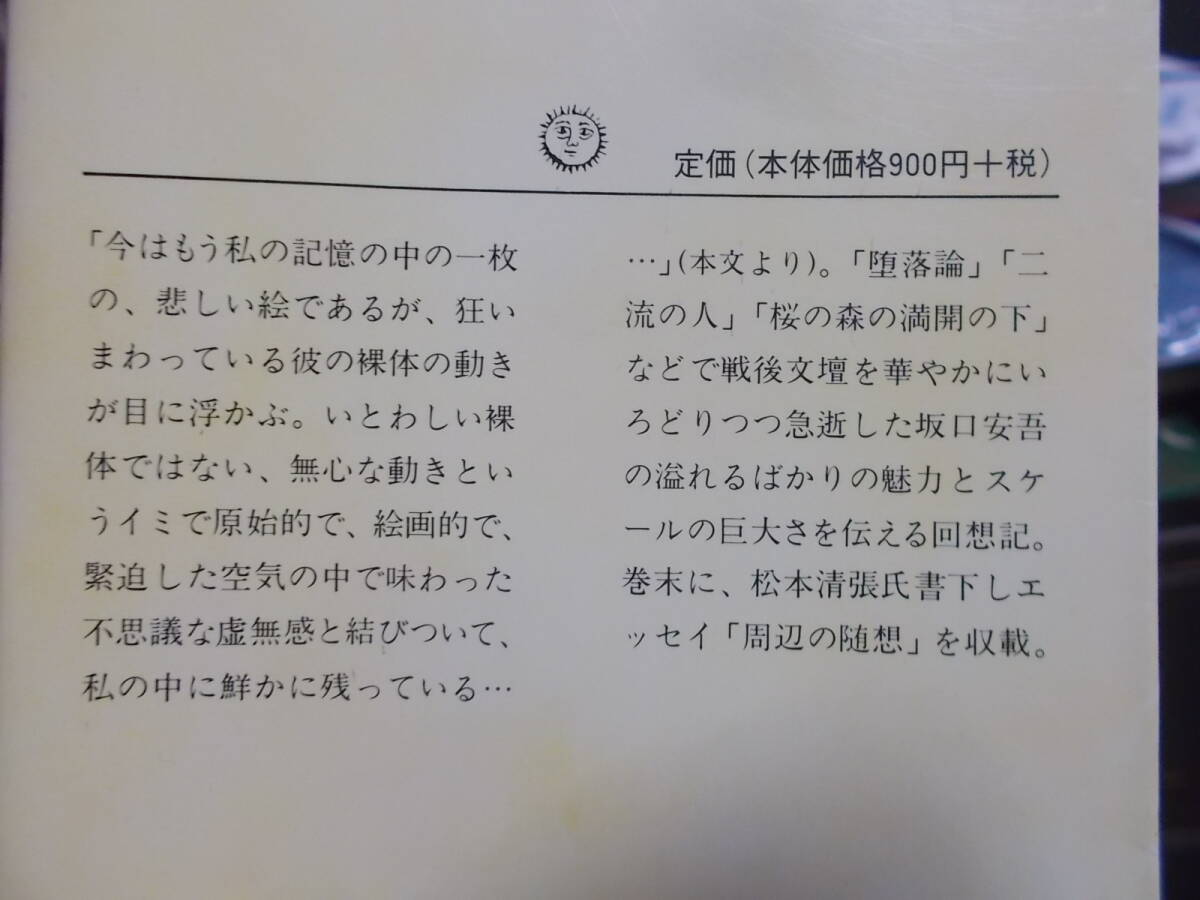 定価(本体価格900円+税)
「今はもう私の記憶の中の一枚
の、悲しい絵であるが、狂い
まわっている彼の裸体の動き
が目に浮かぶ。いとわしい裸
体ではない、無心な動きとい
うイミで原始的で、絵画的で、
緊迫した空気の中で味わった
不思議な虚無感と結びついて、
私の中に鮮かに残っている…
…」(本文より)。「堕落論」「二
流の人」「桜の森の満開の下」
などで戦後文壇を華やかにい
ろどりつつ急逝した坂口安吾
の溢れるばかりの魅力とスケ
ールの巨大さを伝える回想記。
巻末に、松本清張氏書下しエ
ッセイ「周辺の随想」を収載。